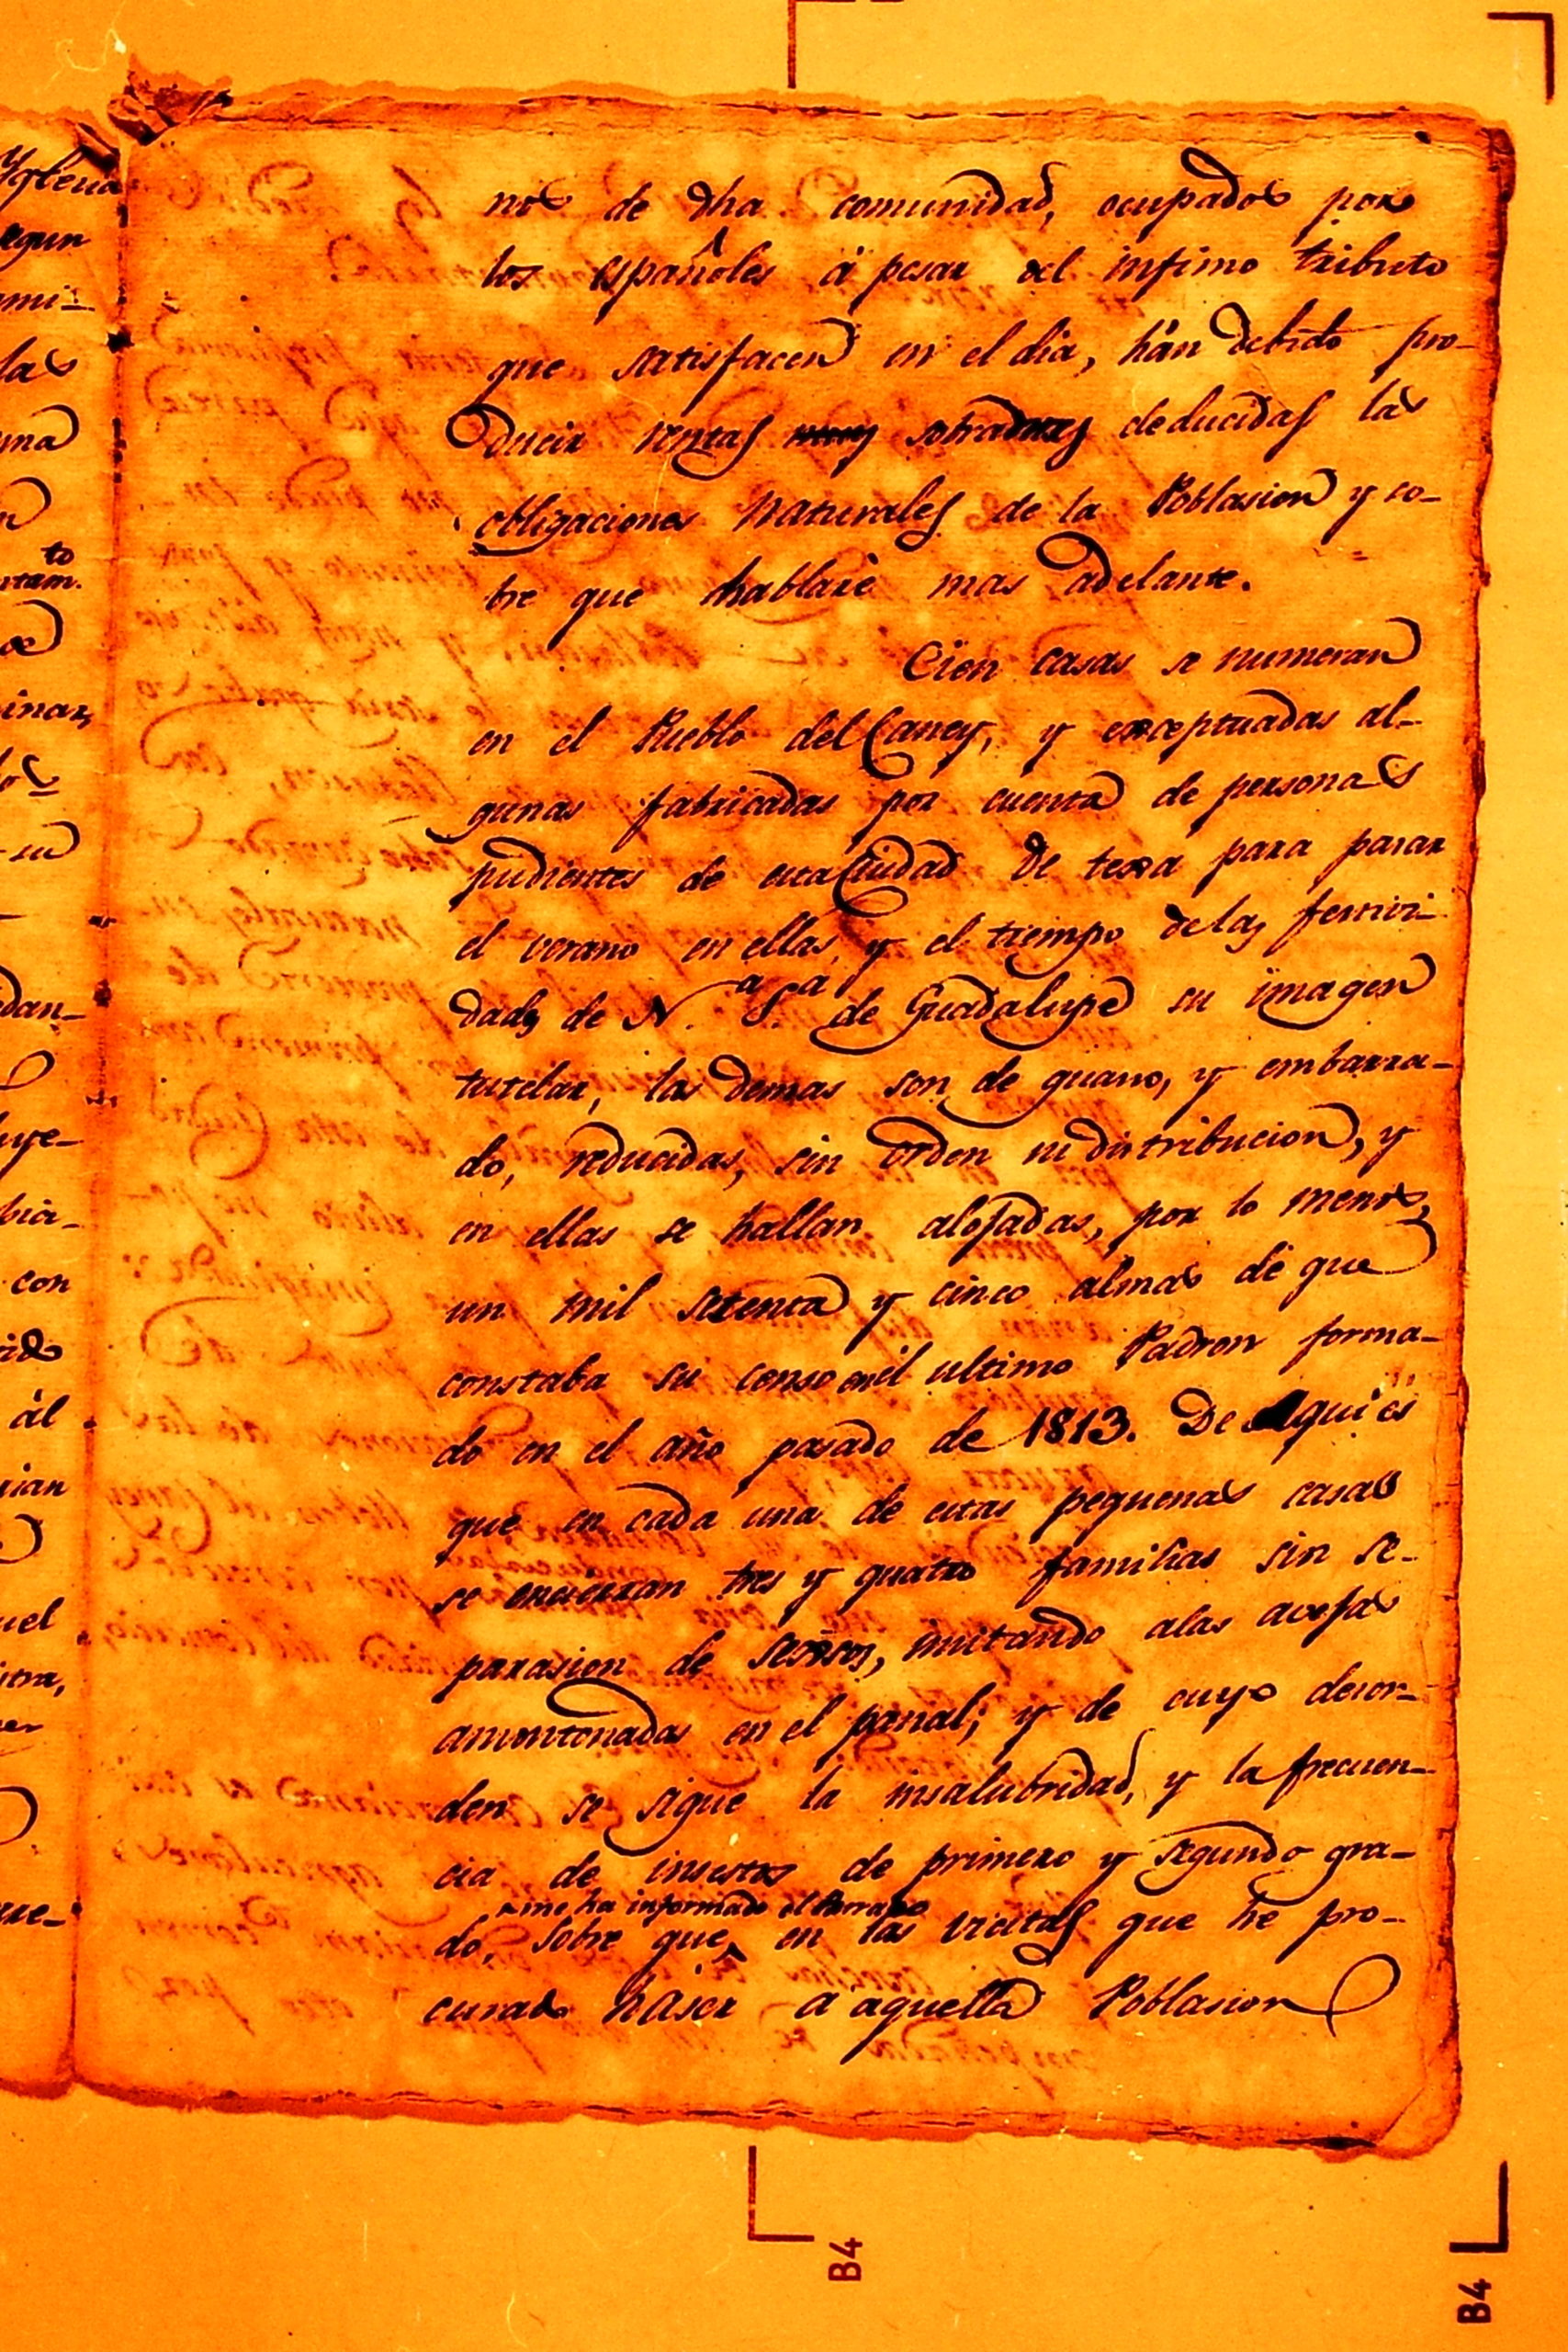 Yglecia
egun
mi-
las
ma
n
to
rtam.
inar,
los
su
dan-
uye-
bia-
con
ál
rian
uel
stra,
que-
nos de dha comunidad, ocupados por
los españoles á pesar del infimo tributo
que satisfacen en el dia, hán debido pro-
ducir rentas sobradas deducidas las
obligaciones naturales de la Poblasion y so-
bre que hablaré mas adelante.
Cien casas se numeran
en el Pueblo del Caney, y exceptuadas al-
gunas fabricadas por cuenta de personas
pudientes de esta Ciudad de texa para pasar
el verano en ellas, y el tiempo de las festivi-
dads de N.a S.a de Guadalupe su imagen
tutelar, las demas son de guano, y embarra-
do, reducidas, sin orden ni distribucion, y
en ellas se hallan alojadas, por lo menos,
un mil setenta y cinco almas de que
constaba su censo en el ultimo Padron forma-
do en el año pasado de 1813. De Aqui es
que en cada una de estas pequenas casas
se encierran tres y quatro familias sin se-
parasion de sexsos, imitando alas avejas
amontonadas en el panal; y de cuyo desor-
den se sigue la insalubridad, y la frecuen-
cia de insestos de primero y segundo gra-
me ha informado el Parraco
do, sobre que, en las vicitas que he pro-
curado háser a aquella Poblasion
B4
B4